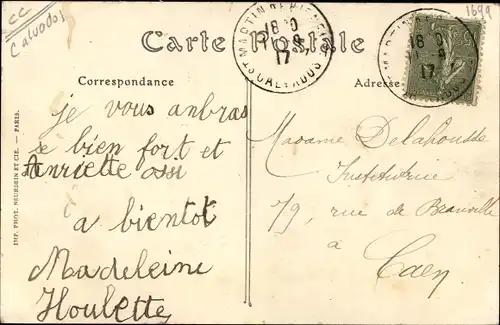 CC
Calvados
1699
Carte Postale
Correspondance
Adresse
18
17
CALVADOS
18
17
je vous anbras
se bien fort et
Anriette osi
a bientot
Madeleine
Houlette
Madame Delahousse
Institutrice
79, rue de Beauville
à
Caen
IMP. PHOT. NEURDEIN ET CIE. — PARIS.